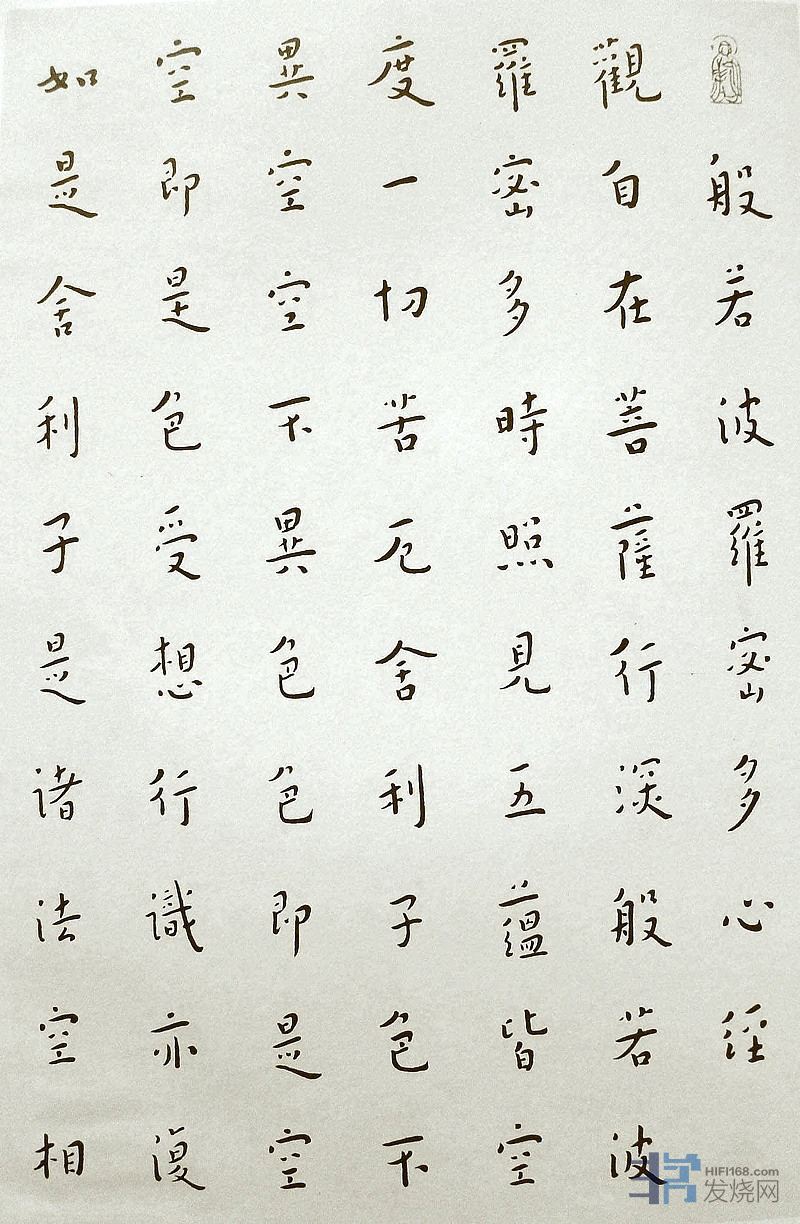 般若波羅密多心經
觀自在菩薩行深般若波
羅密多時照見五蘊皆空
度一切苦厄舍利子色不
異空空不異色色即是空
空即是色受想行識亦復
如是舍利子是諸法空相
HIFI168.com
发烧网